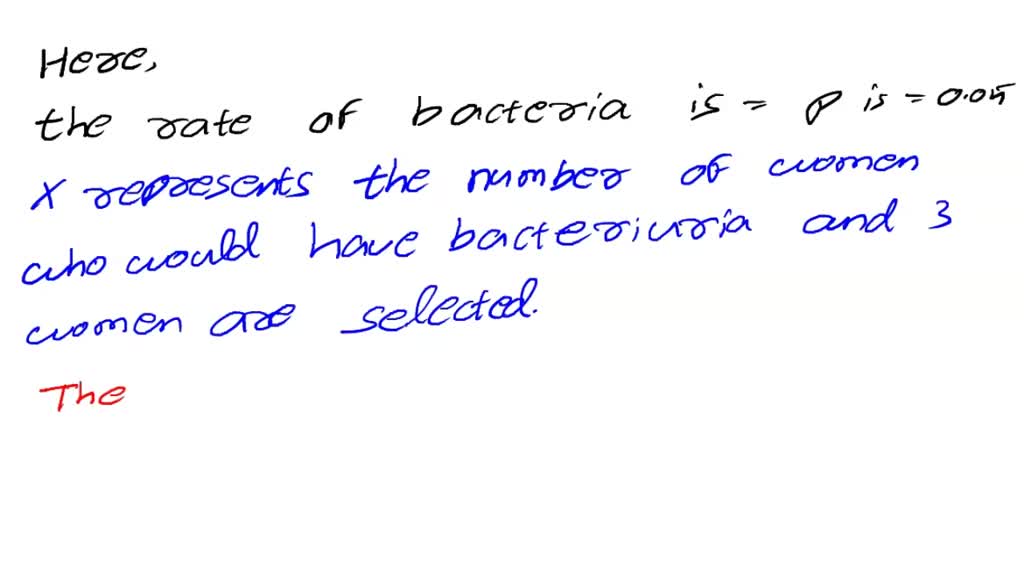 Here,
the rate of bacteria is = p is = 0.05
X represents the number of women
who would have bacteriuria and 3
women are selected.
The